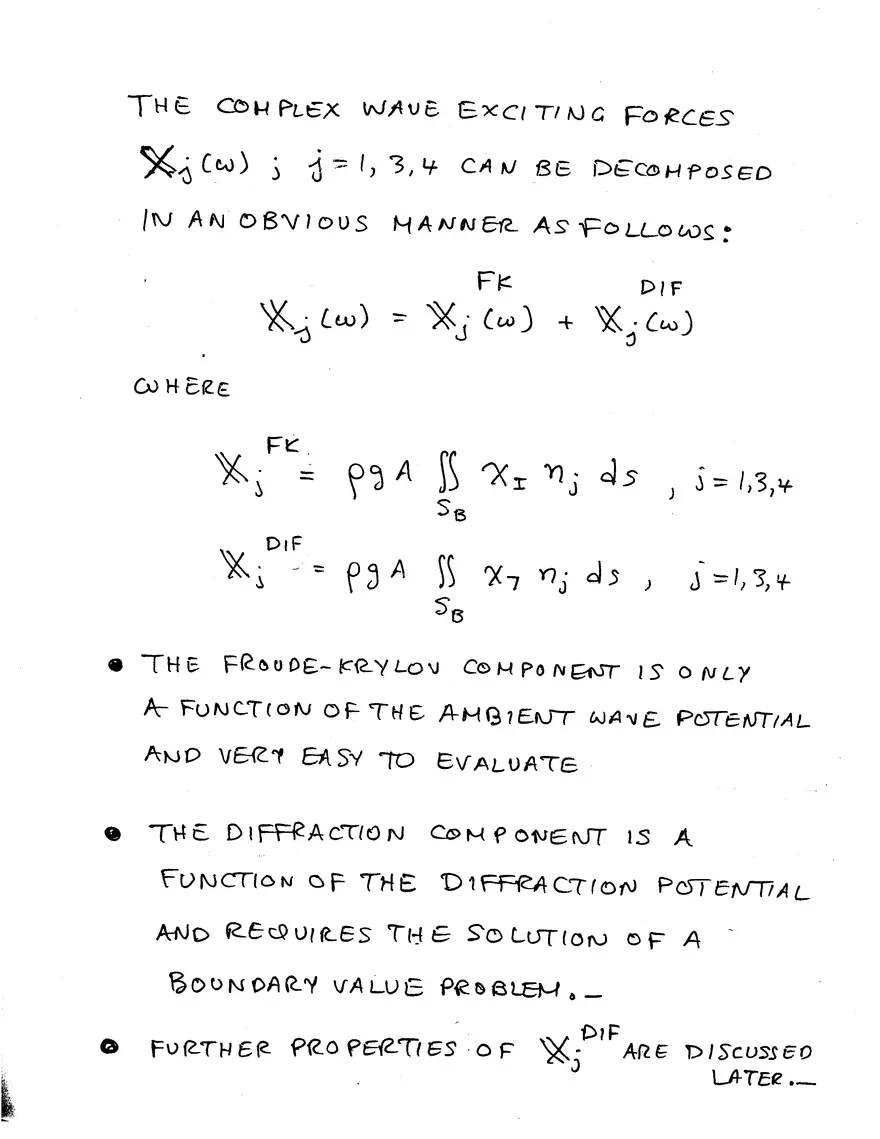 THE COMPLEX WAVE EXCITING FORCES
𝕏j(ω) ; j = 1, 3, 4 CAN BE DECOMPOSED
IN AN OBVIOUS MANNER AS FOLLOWS:
𝕏j(ω) = 𝕏j^FK(ω) + 𝕏j^DIF(ω)
WHERE
𝕏j^FK = ρgA ∬_SB χI nj ds , j = 1,3,4
𝕏j^DIF = ρgA ∬_SB χ7 nj ds , j = 1,3,4
• THE FROUDE-KRYLOV COMPONENT IS ONLY
A FUNCTION OF THE AMBIENT WAVE POTENTIAL
AND VERY EASY TO EVALUATE
• THE DIFFRACTION COMPONENT IS A
FUNCTION OF THE DIFFRACTION POTENTIAL
AND REQUIRES THE SOLUTION OF A
BOUNDARY VALUE PROBLEM. —
• FURTHER PROPERTIES OF 𝕏j^DIF ARE DISCUSSED
LATER. —